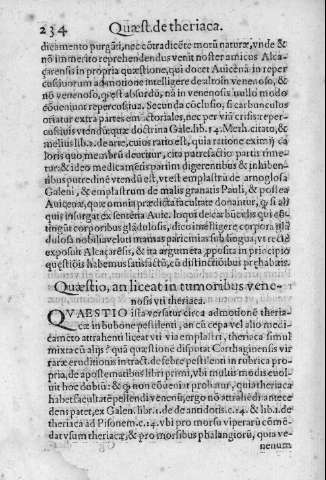 234 Quæst. de theriaca.
dicamento purgāti, nec cōtradicēte motū naturæ, vnde &
nō immerito reprehendendus venit noster amicus Alca-
çarensis in propria quæstione, qui docet Auicenā in reper
cussiuorum admotione intelligere de altoin venenoso, &
nō venenoso, qđ est absurdū, nā in venenosis nullo modo
cōueniunt repercussiua. Secunda cōclusio, si carbunculus
oriatur extra partes emūctoriales, nec per viā crisis: reper-
cussiuis vtendū
doctrina Gale. lib. 14. Meth. citato, &
melius lib. 2. de arte, cuius ratio est, quia ratione eximij ca
loris quo membrū deuritur, cita putrefactio partis time-
tur: & ideo medicamētis partim digerentibus & inhiben-
tibus putredinē vtendū est, vt est emplastrū de arnoglossa
Galeni, & emplastrum de malis granatis Pauli, & postea
Auicenæ, quæ omnia prædicta facultate donantur, q si ali
quis insurgat ex sentētia Auic. loqui de carbūculis qui cōti
tingūt corporibus glādulosis, dico intelligere corpora glā
dulosa nobilia veluti mamas
sub lingua, vt recte
exposuit Alcaçarēsis, & ita argumēta apposita in principio
quæstiōis habemus satisfactū, cū distinctionibus probatis.
Quæstio, an liceat in tumoribus vene-
nosis vti theriaca.
QVAESTIO ista versatur circa admotionē theria-
cæ in bubone pestilenti, an cū cepa vel alio medi-
camēto attrahenti liceat vti via emplastri, theriaca simul
mixta cū alijs? quā quæstionē disputat Corthaginensis vir
raræ eruditionis in tract. de febre pestilenti in rubrica pro-
pria, de apostematibus libri primi, vbi multis modis euol-
uit hoc dubiū: & q non cōueniat probatur, quia theriaca
habet facultatē pellendi venenū, ergo nō attrahēdi antece
dens patet, ex Galen. lib. 1. de de antidotis. c. 14. & lib. 1. de
theriaca ad Pisonem. c. 14. vbi pro morsu viperarū cōmē-
dat vsum theriacæ, & pro morsibus phalangiorū, quia ve-
nenum